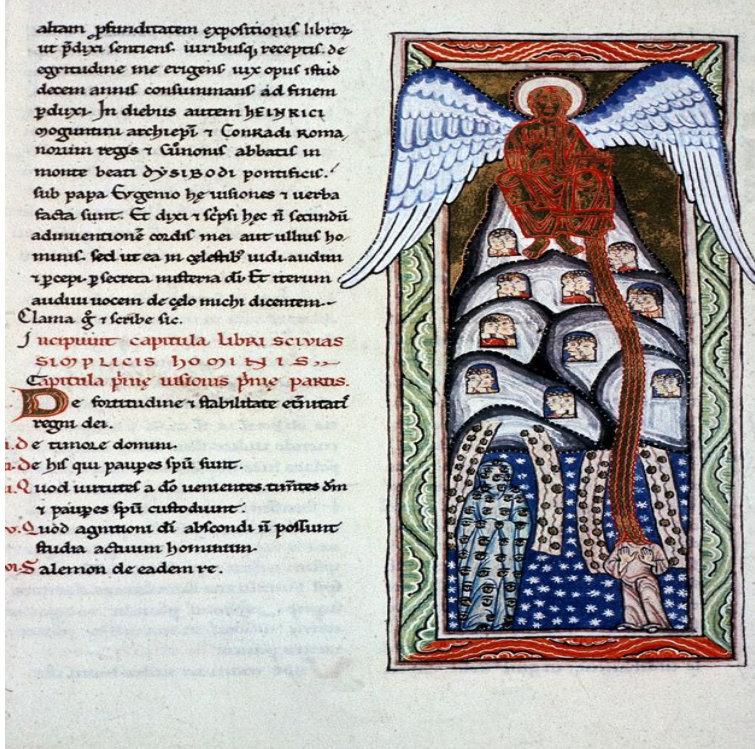 altam ꝓfunditatem expositionis libroꝝ
ut p̄dixi sentiens. uiribusq; receptis. de
egritudine me erigens uix opus istud
decem annis consummans ad finem
ꝑduxi. In diebus autem hEINRICI
moguntini archiep̄i ⁊ Conradi Roma-
norum regis ⁊ Cunonis abbatis in
monte beati dYSIBODI pontificis.
sub papa Evgenio hę uisiones ⁊ uerba
facta sunt. Et dixi ⁊ sc̄psi hec n̄ secundū
adinuentionē cordis mei aut ullius ho-
minis. sed ut ea in cęlestib' uidi. audiui
⁊ ꝑcepi. ꝑ secreta misteria dī. Et iterum
audiui uocem de cęlo michi dicentem.
Clama g̊ ⁊ scribe sic.
Incipiunt capitula libri scivias
simplicis hominis.
Capitula p̄mę uisionis p̄mę partis.
De fortitudine ⁊ stabilitate et̄nitatī
regni dei.
De timore domini.
De his qui paupes spū sunt.
Quod uirtutes a dō uenientes. tim̄tes dm̄
⁊ paupes spū custodiunt.
Quod agnitioni dī abscondi n̄ possunt
studia actuum hominum.
Salemon de eadem re.